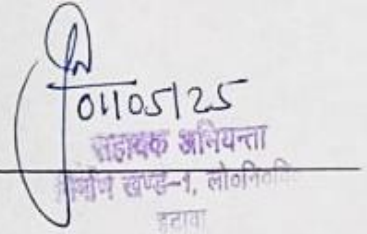 01105125
सहायक अभियन्ता
निर्माण खण्ड-1, लो०नि०वि०
इटावा